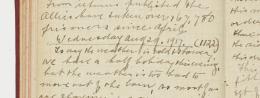 From returns published the
Allies have taken over 167,780
prisoners since April
Wednesday Aug 29. 1917. (1122)
To day the weather is cold & stormy
we have a half holiday this evening
but the weather is too bad to
move out of the barn, as most of